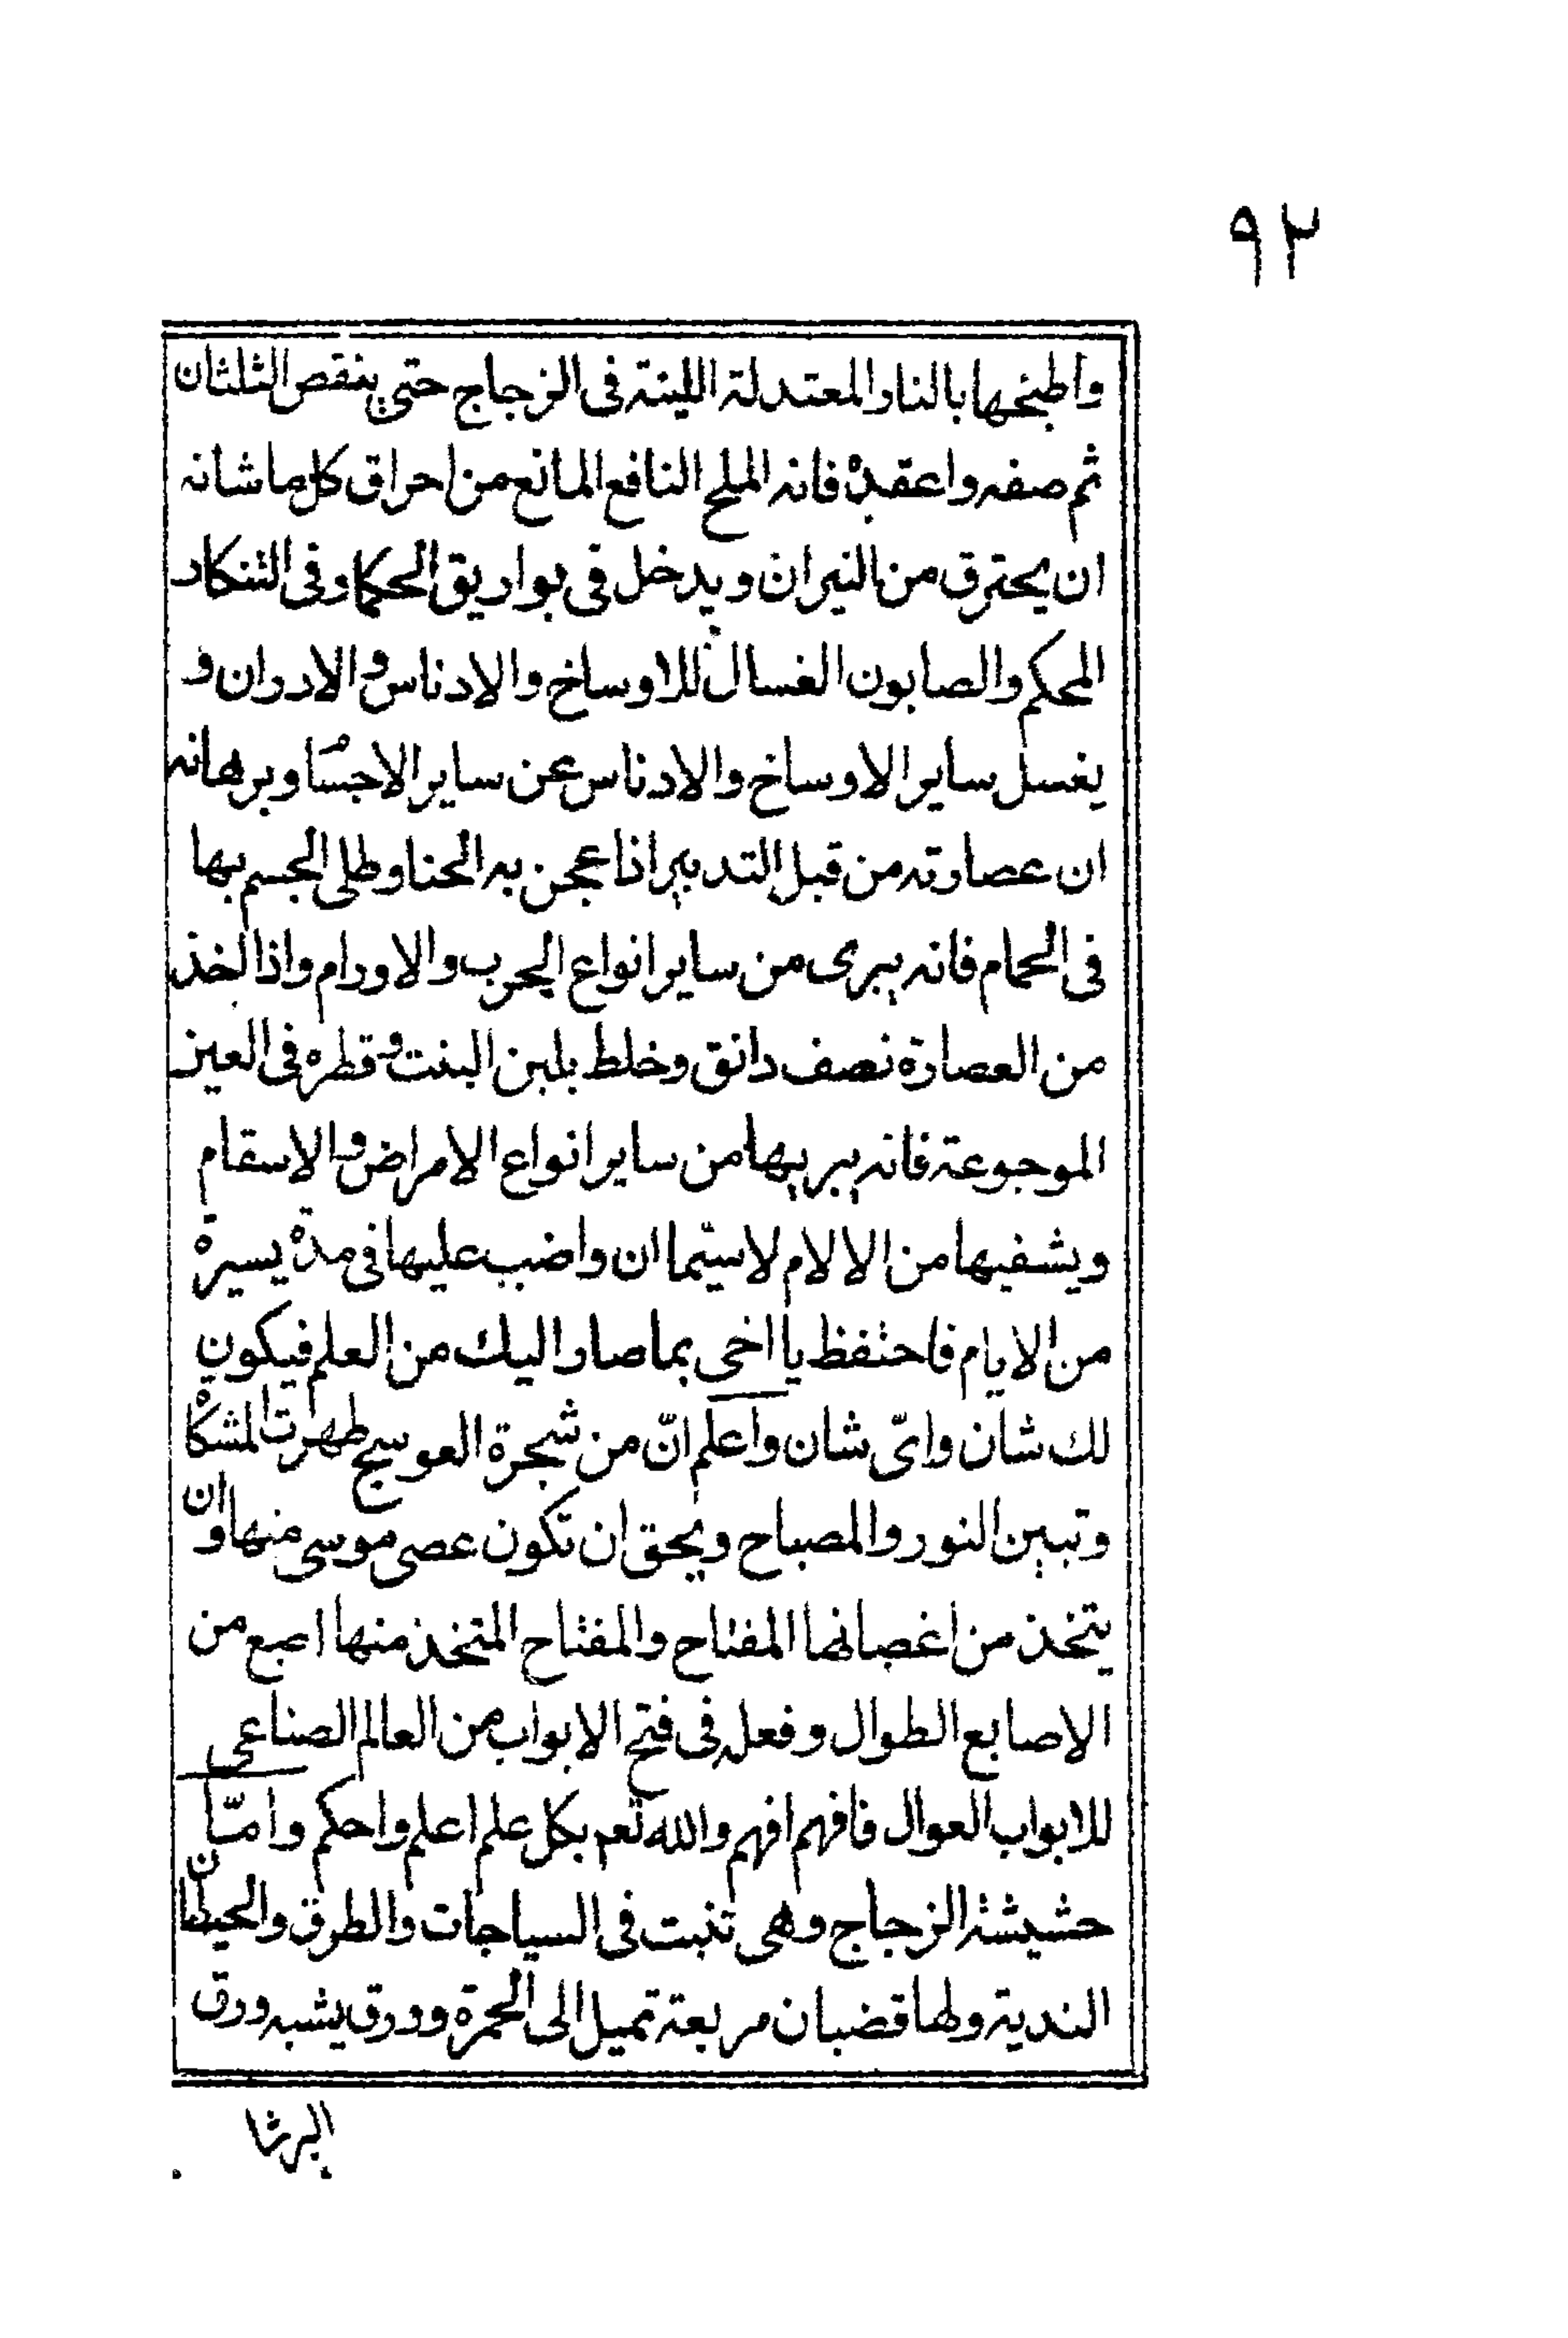 ٩٢
واطبخها بالنار المعتدلة اللينة فى الزجاج حتى ينقص الثلثان
ثم صفه واعقده فانه الملح النافع المانع من احراق كل ما شانه
ان يحترق من النيران ويدخل فى بواريق الحكما وفى التنكار
المحكم والصابون الغسال للاوساخ والادناس والادران و
يغسل ساير الاوساخ والادناس عن ساير الاجسام وبرهانه
ان عصارته من قبل التدبير اذا عجن به الحنا وطلى الجسم بها
فى الحمام فانه يبرى من ساير انواع الجرب والاورام واذا اخذ
من العصارة نصف دانق وخلط بلبن البنت وقطره فى العين
الموجوعة فانه يبريها من ساير انواع الامراض والاسقام
ويشفيها من الالام لاسيّما ان واضب عليها فى مدة يسيرة
من الايام فاحتفظ يا اخى بما صار اليك من العلم فيكون
لك شان واىّ شان واعلم انّ من شجرة العوسج ظهرت المشكاة
وتبين النور والمصباح ويحق ان تكون عصى موسى منها وان
يتخذ من اغصانها المفتاح والمفتاح المتخذ منها اصبع من
الاصابع الطوال وفعله فى فتح الابواب من العالم الصناعى
للابواب العوال فافهم افهم والله تعم بكل علم اعلم واحكم وامّا
حشيشة الزجاج وهى تنبت فى السياجات والطرق والحيطان
الندية ولها قضبان مربعة تميل الى الحمرة وورق يشبه ورق